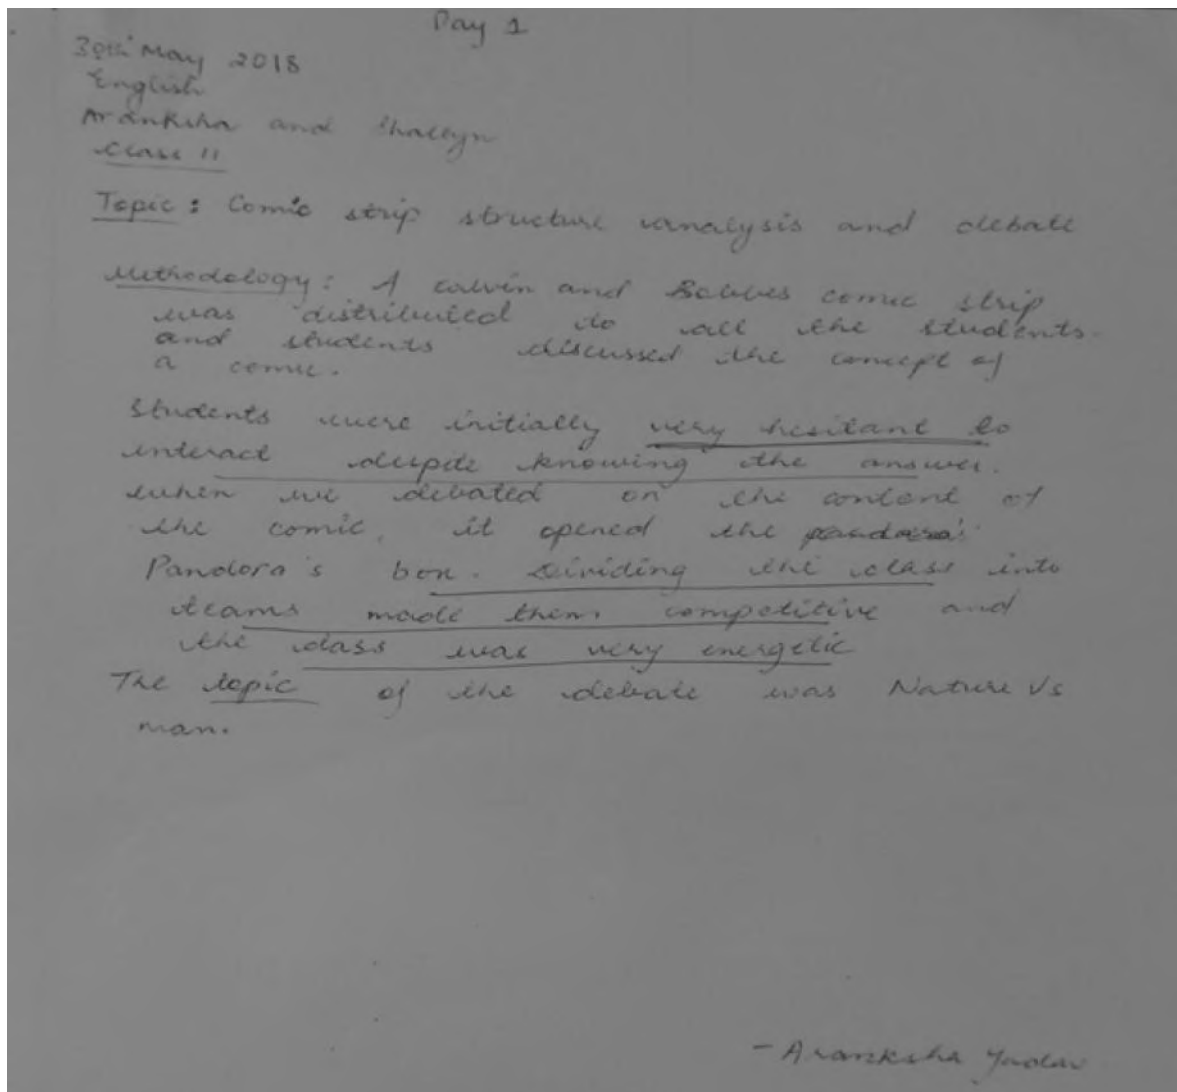 Day 1
30th May 2018
English
Aranksha and Shallyn
Class 11
Topic: Comic strip structure analysis and debate
Methodology: A calvin and Hobbes comic strip
was distributed to all the students.
and students discussed the concept of
a comic.
Students were initially very hesitant to
interact despite knowing the answer.
when we debated on the content of
the comic, it opened the pandora's
Pandora's box. Dividing the class into
teams made them competitive and
the class was very energetic
The topic of the debate was Nature Vs
man.
- Aranksha Yadav